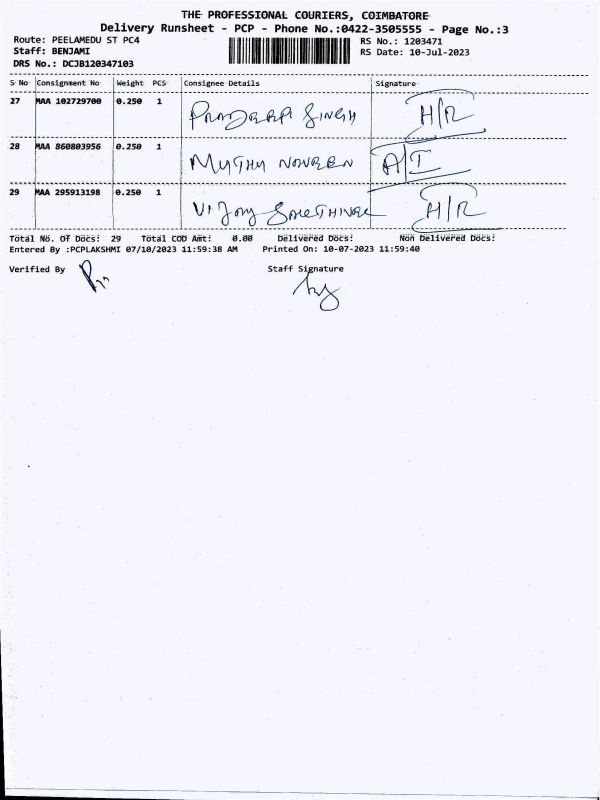 THE PROFESSIONAL COURIERS, COIMBATORE
Delivery Runsheet - PCP - Phone No.:0422-3505555 - Page No.:3
Route: PEELAMEDU ST PC4
RS No.: 1203471
Staff: BENJAMI
RS Date: 10-Jul-2023
DRS No.: DCJB120347103
S No Consignment No Weight PCS Consignee Details Signature
27 MAA 102729700 0.250 1 PRADEEP SINGH H/R
28 MAA 860803956 0.250 1 MUTHU NAVEEN A/I
29 MAA 295913198 0.250 1 VIJAY H/R
Total No. Of Docs: 29 Total COD Amt: 0.00 Delivered Docs: Non Delivered Docs:
Entered By :PCPLAKSHMI 07/10/2023 11:59:38 AM Printed On: 10-07-2023 11:59:40
Verified By Staff Signature